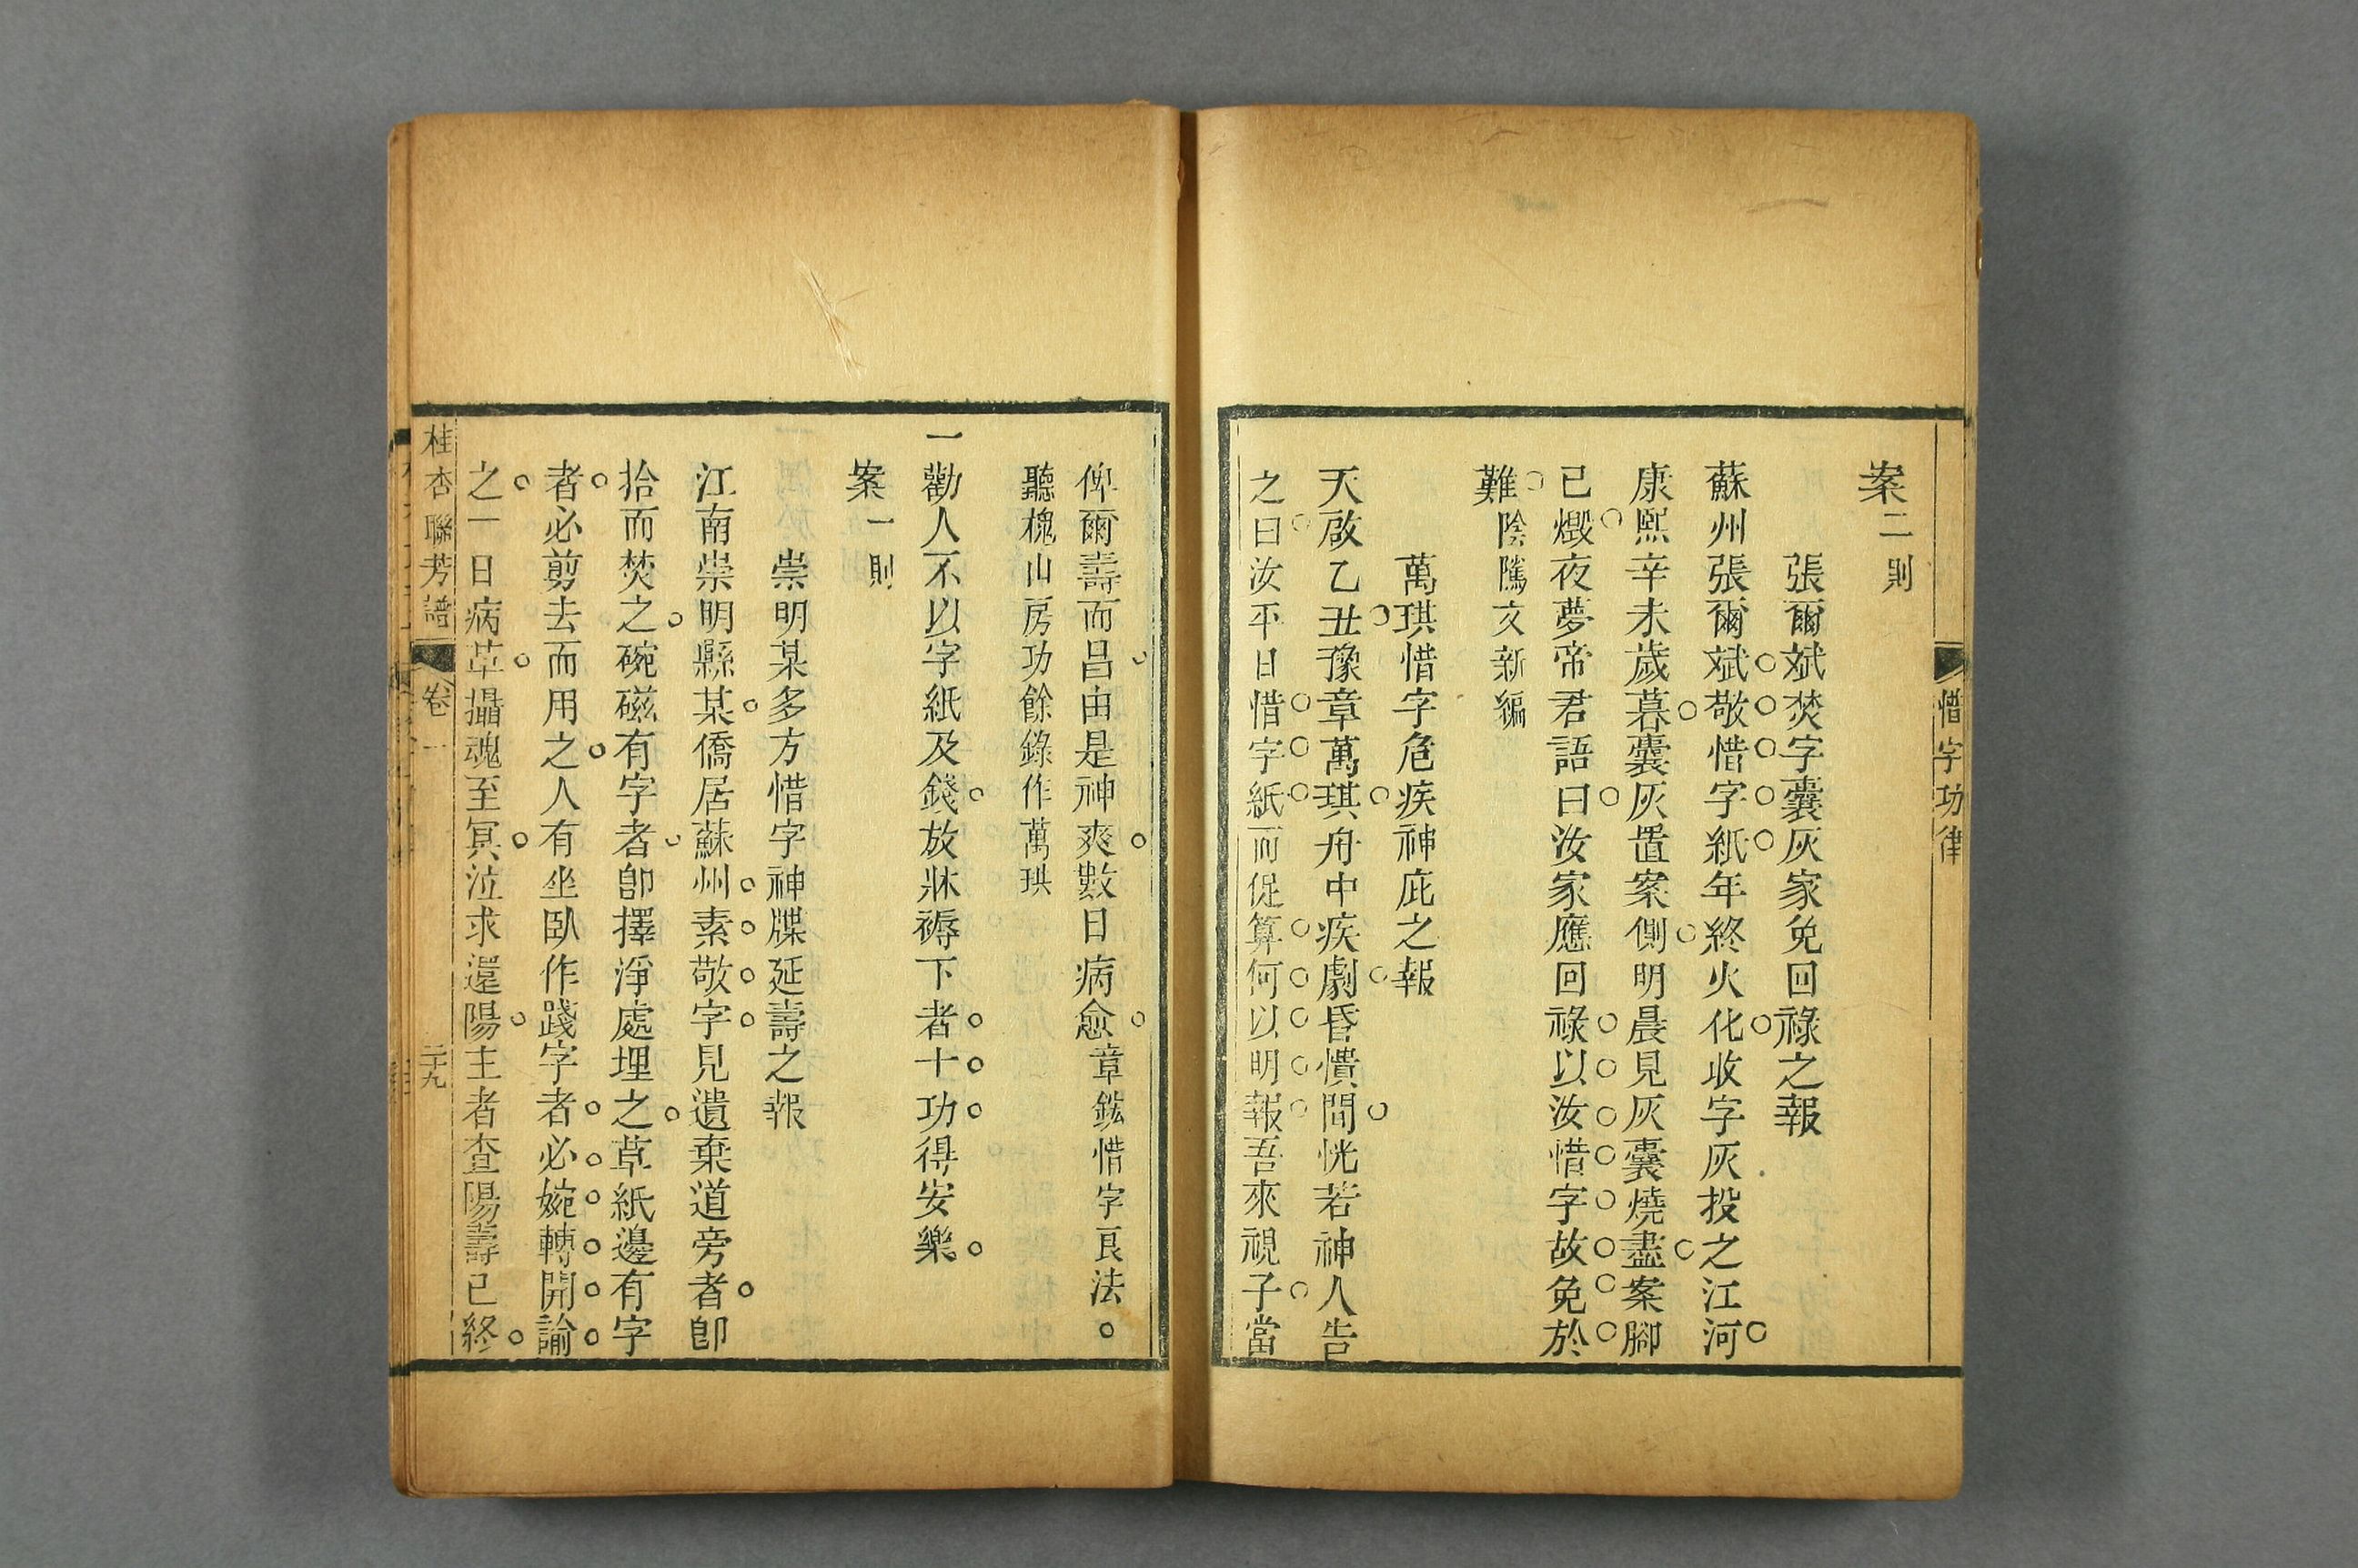 惜字功律
案二則
張爾斌焚字囊灰家免回祿之報
蘇州張爾斌敬惜字紙年終火化收字灰投之江河
康熙辛未歲暮囊灰置案側明晨見灰囊燒盡案腳
已燬夜夢帝君語曰汝家應回祿以汝惜字故免於
難陰隲文新編
萬琪惜字危疾神庇之報
天啟乙丑豫章萬琪舟中疾劇昏憒間恍若神人告
之曰汝平日惜字紙而促算何以明報吾來視子當
俾爾壽而昌由是神爽數日病愈章鋐惜字良法
聽槐山房功餘錄作萬珙
一勸人不以字紙及錢放牀褥下者十功得安樂
案一則
崇明某多方惜字神牒延壽之報
江南崇明縣某僑居蘇州素敬字見遺棄道旁者卽
拾而焚之碗磁有字者卽擇淨處埋之草紙邊有字
者必剪去而用之人有坐臥作踐字者必婉轉開諭
之一日病革攝魂至冥泣求還陽主者查陽壽已終
桂杏聯芳譜 卷一 二十九